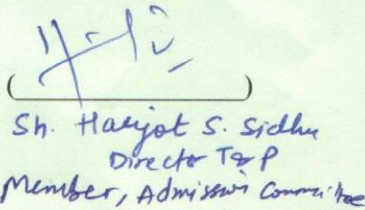 ( )
Sh. Harjot S. Sidhu
Director T&P
Member, Admission Committee